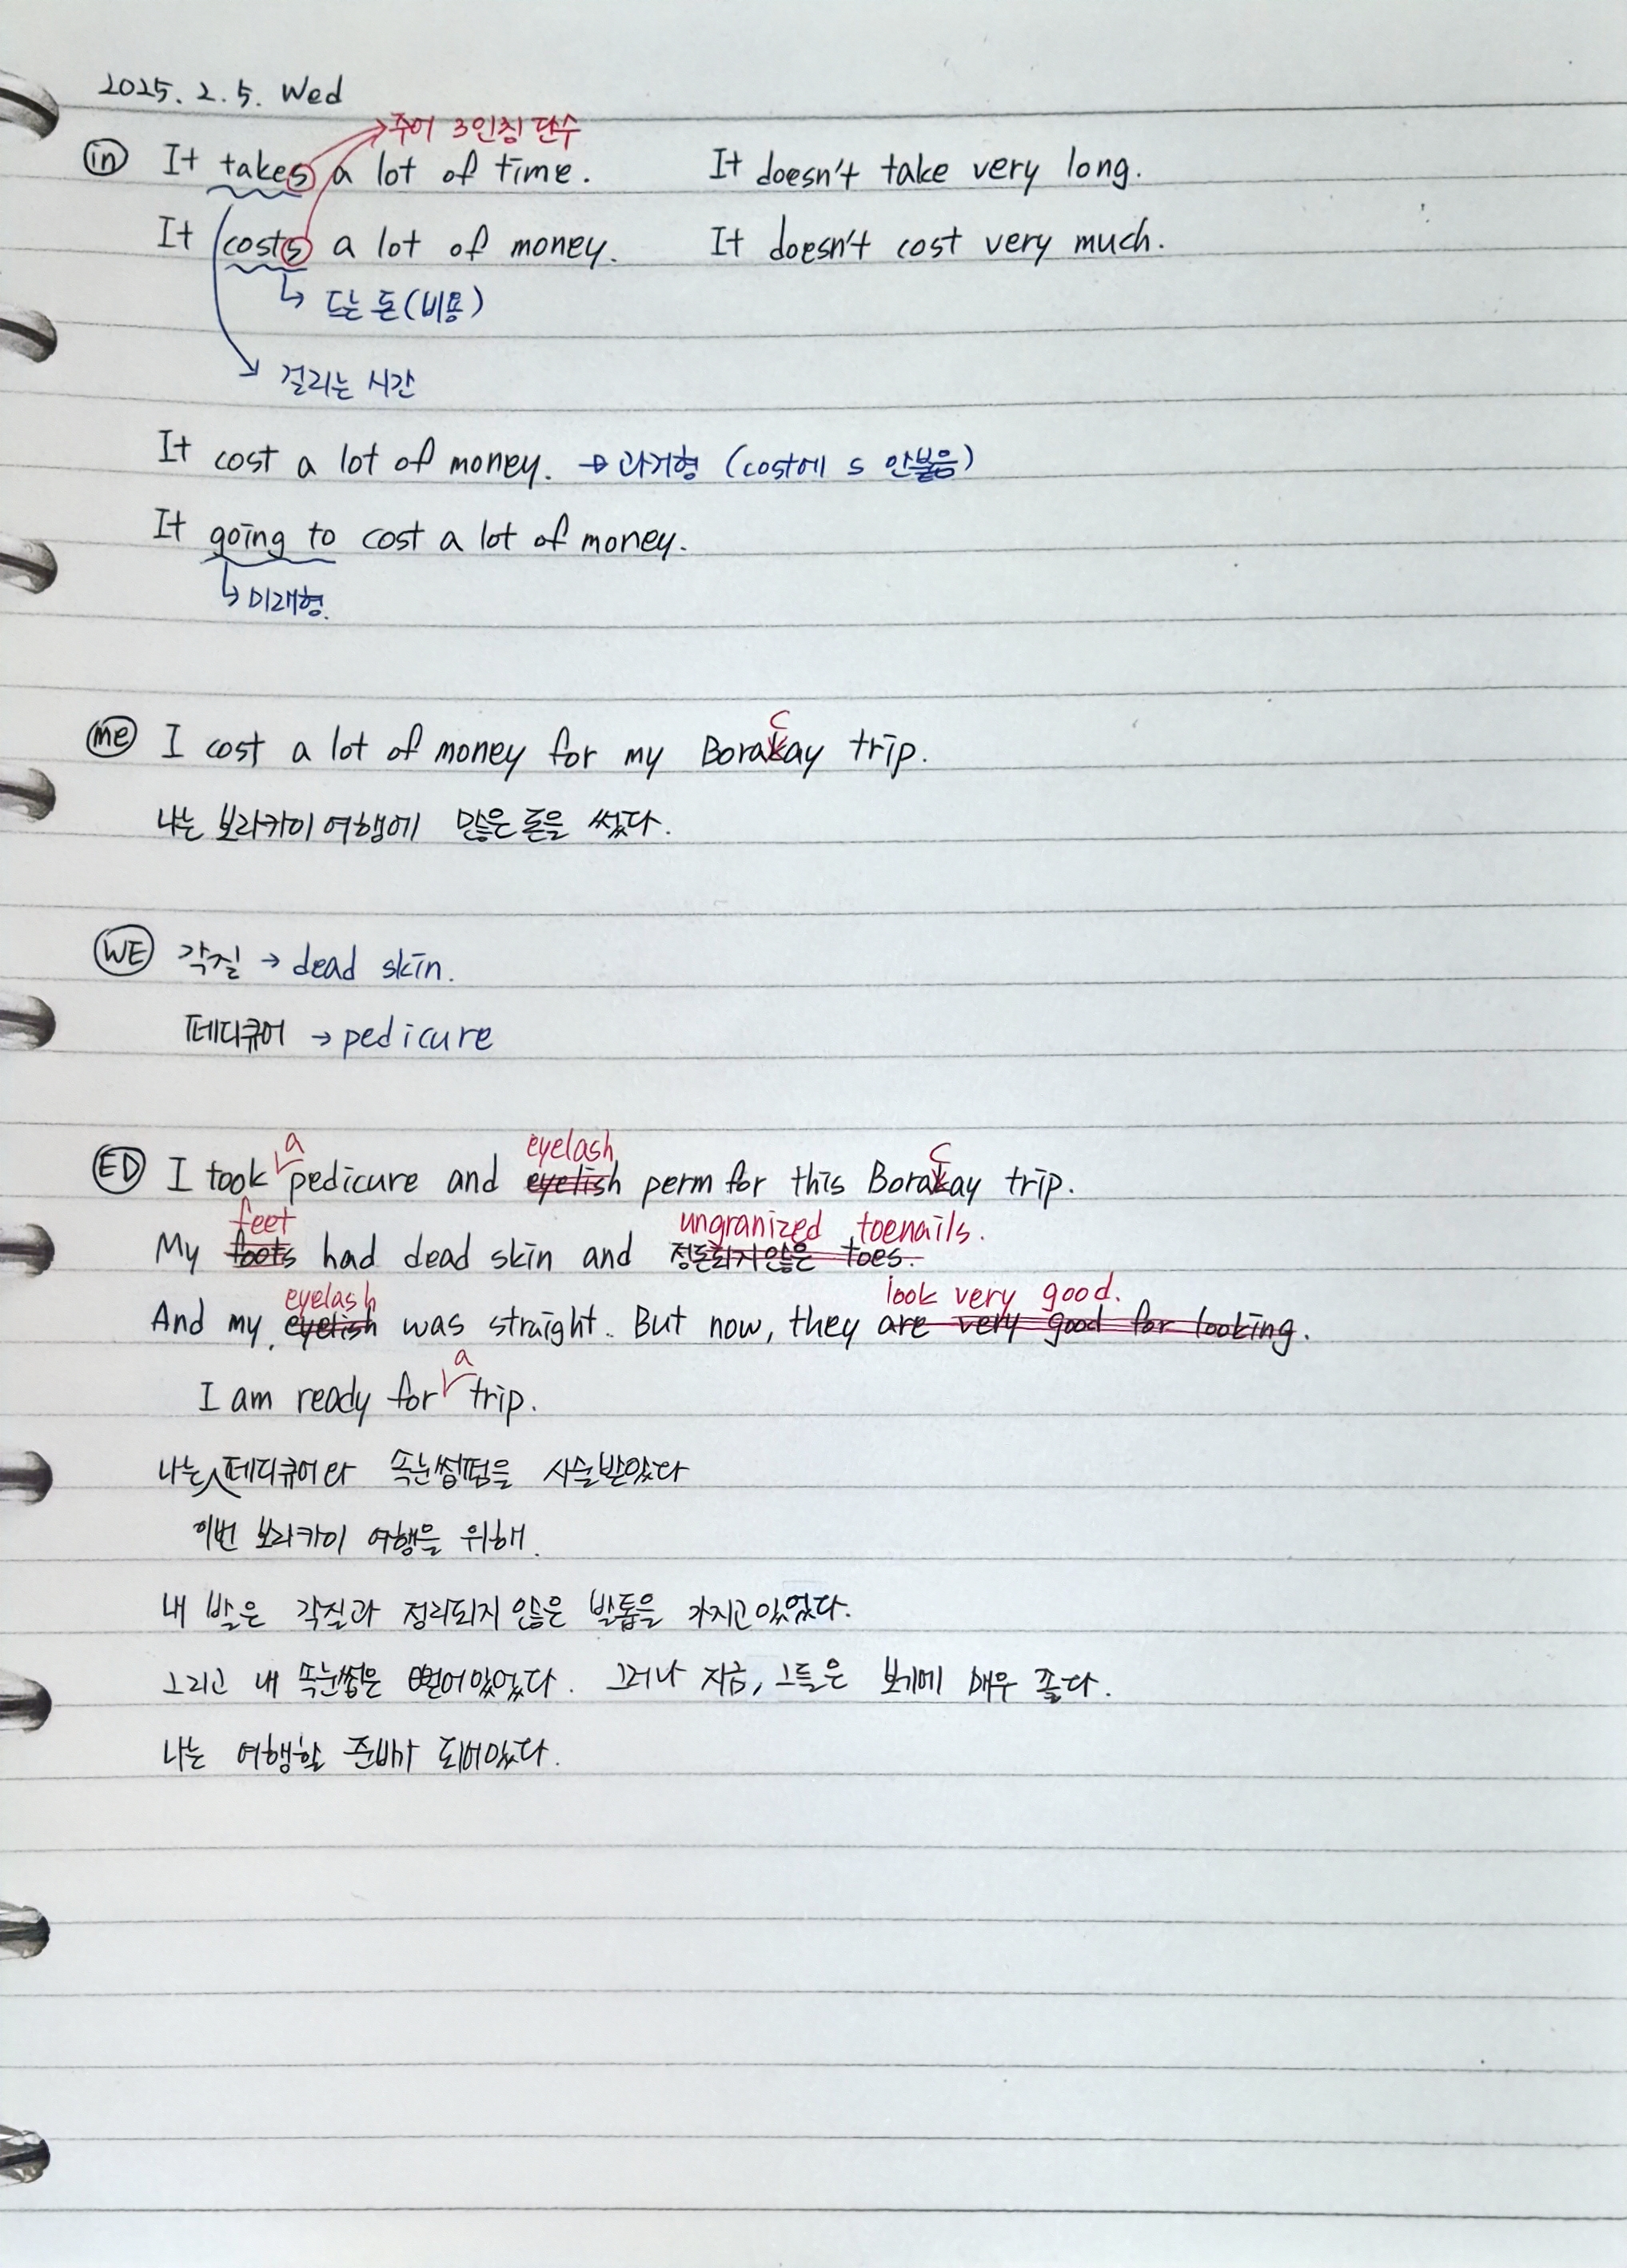 2025. 2. 5. Wed
주어 3인칭 단수
in It takes a lot of time. It doesn't take very long.
It costs a lot of money. It doesn't cost very much.
↳ 드는 돈(비용)
걸리는 시간
It cost a lot of money. → 과거형 (cost에 s 안붙음)
It going to cost a lot of money.
↳ 미래형.
c
me I cost a lot of money for my Borakay trip.
나는 보라카이 여행에 많은 돈을 썼다.
WE 각질 → dead skin.
페디큐어 → pedicure
a eyelash c
ED I took pedicure and eyelish perm for this Borakay trip.
feet ungranized toenails.
My foots had dead skin and 정돈되지않은 toes.
eyelash look very good.
And my eyelish was straight. But now, they are very good for looking.
a
I am ready for trip.
나는 페디큐어와 속눈썹펌을 시술받았다
이번 보라카이 여행을 위해.
내 발은 각질과 정리되지 않은 발톱을 가지고있었다.
그리고 내 속눈썹은 뻗어있었다. 그러나 지금, 그들은 보기에 매우 좋다.
나는 여행할 준비가 되어있다.